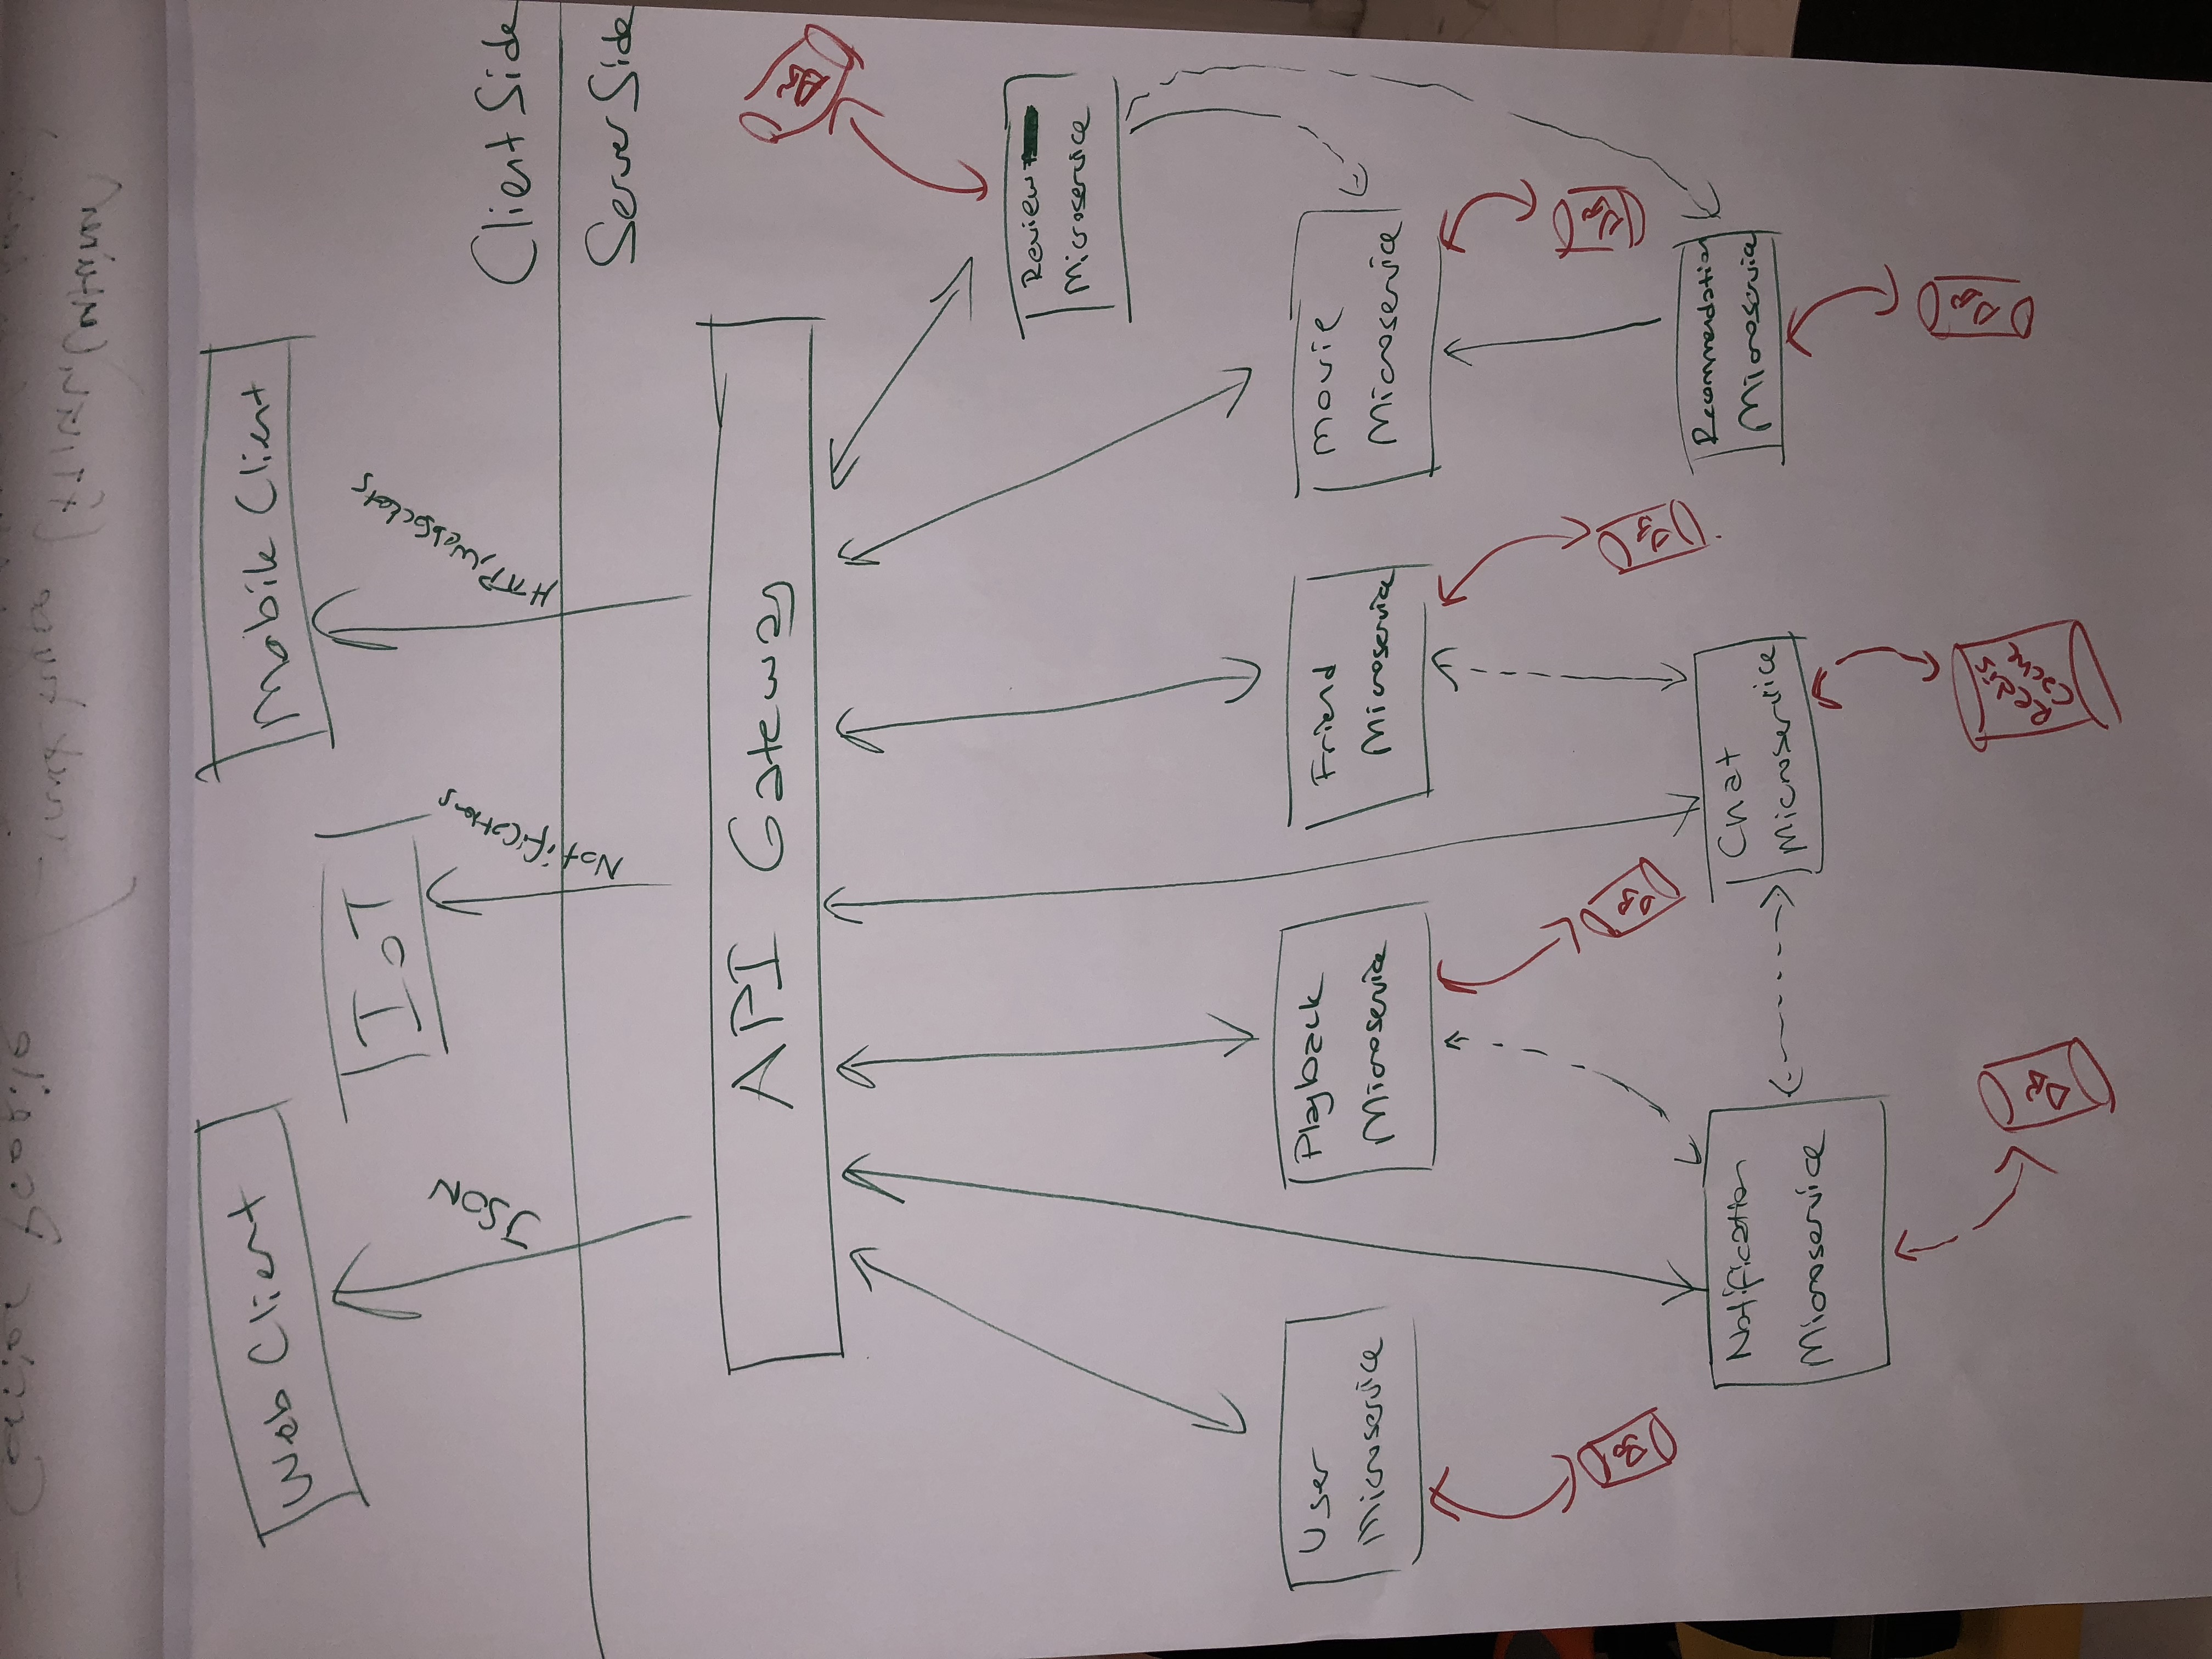 Web Client
Mobile Client
IoT
JSON
Notifications
HTTP, WebSockets
Client Side
Server Side
API Gateway
DB
Review
Microservice
User
Microservice
Playback
Microservice
Friend
Microservice
Movie
Microservice
DB
DB
DB
DB
Notification
Microservice
Chat
Microservice
Recommendation
Microservice
DB
Redis
Cache
DB